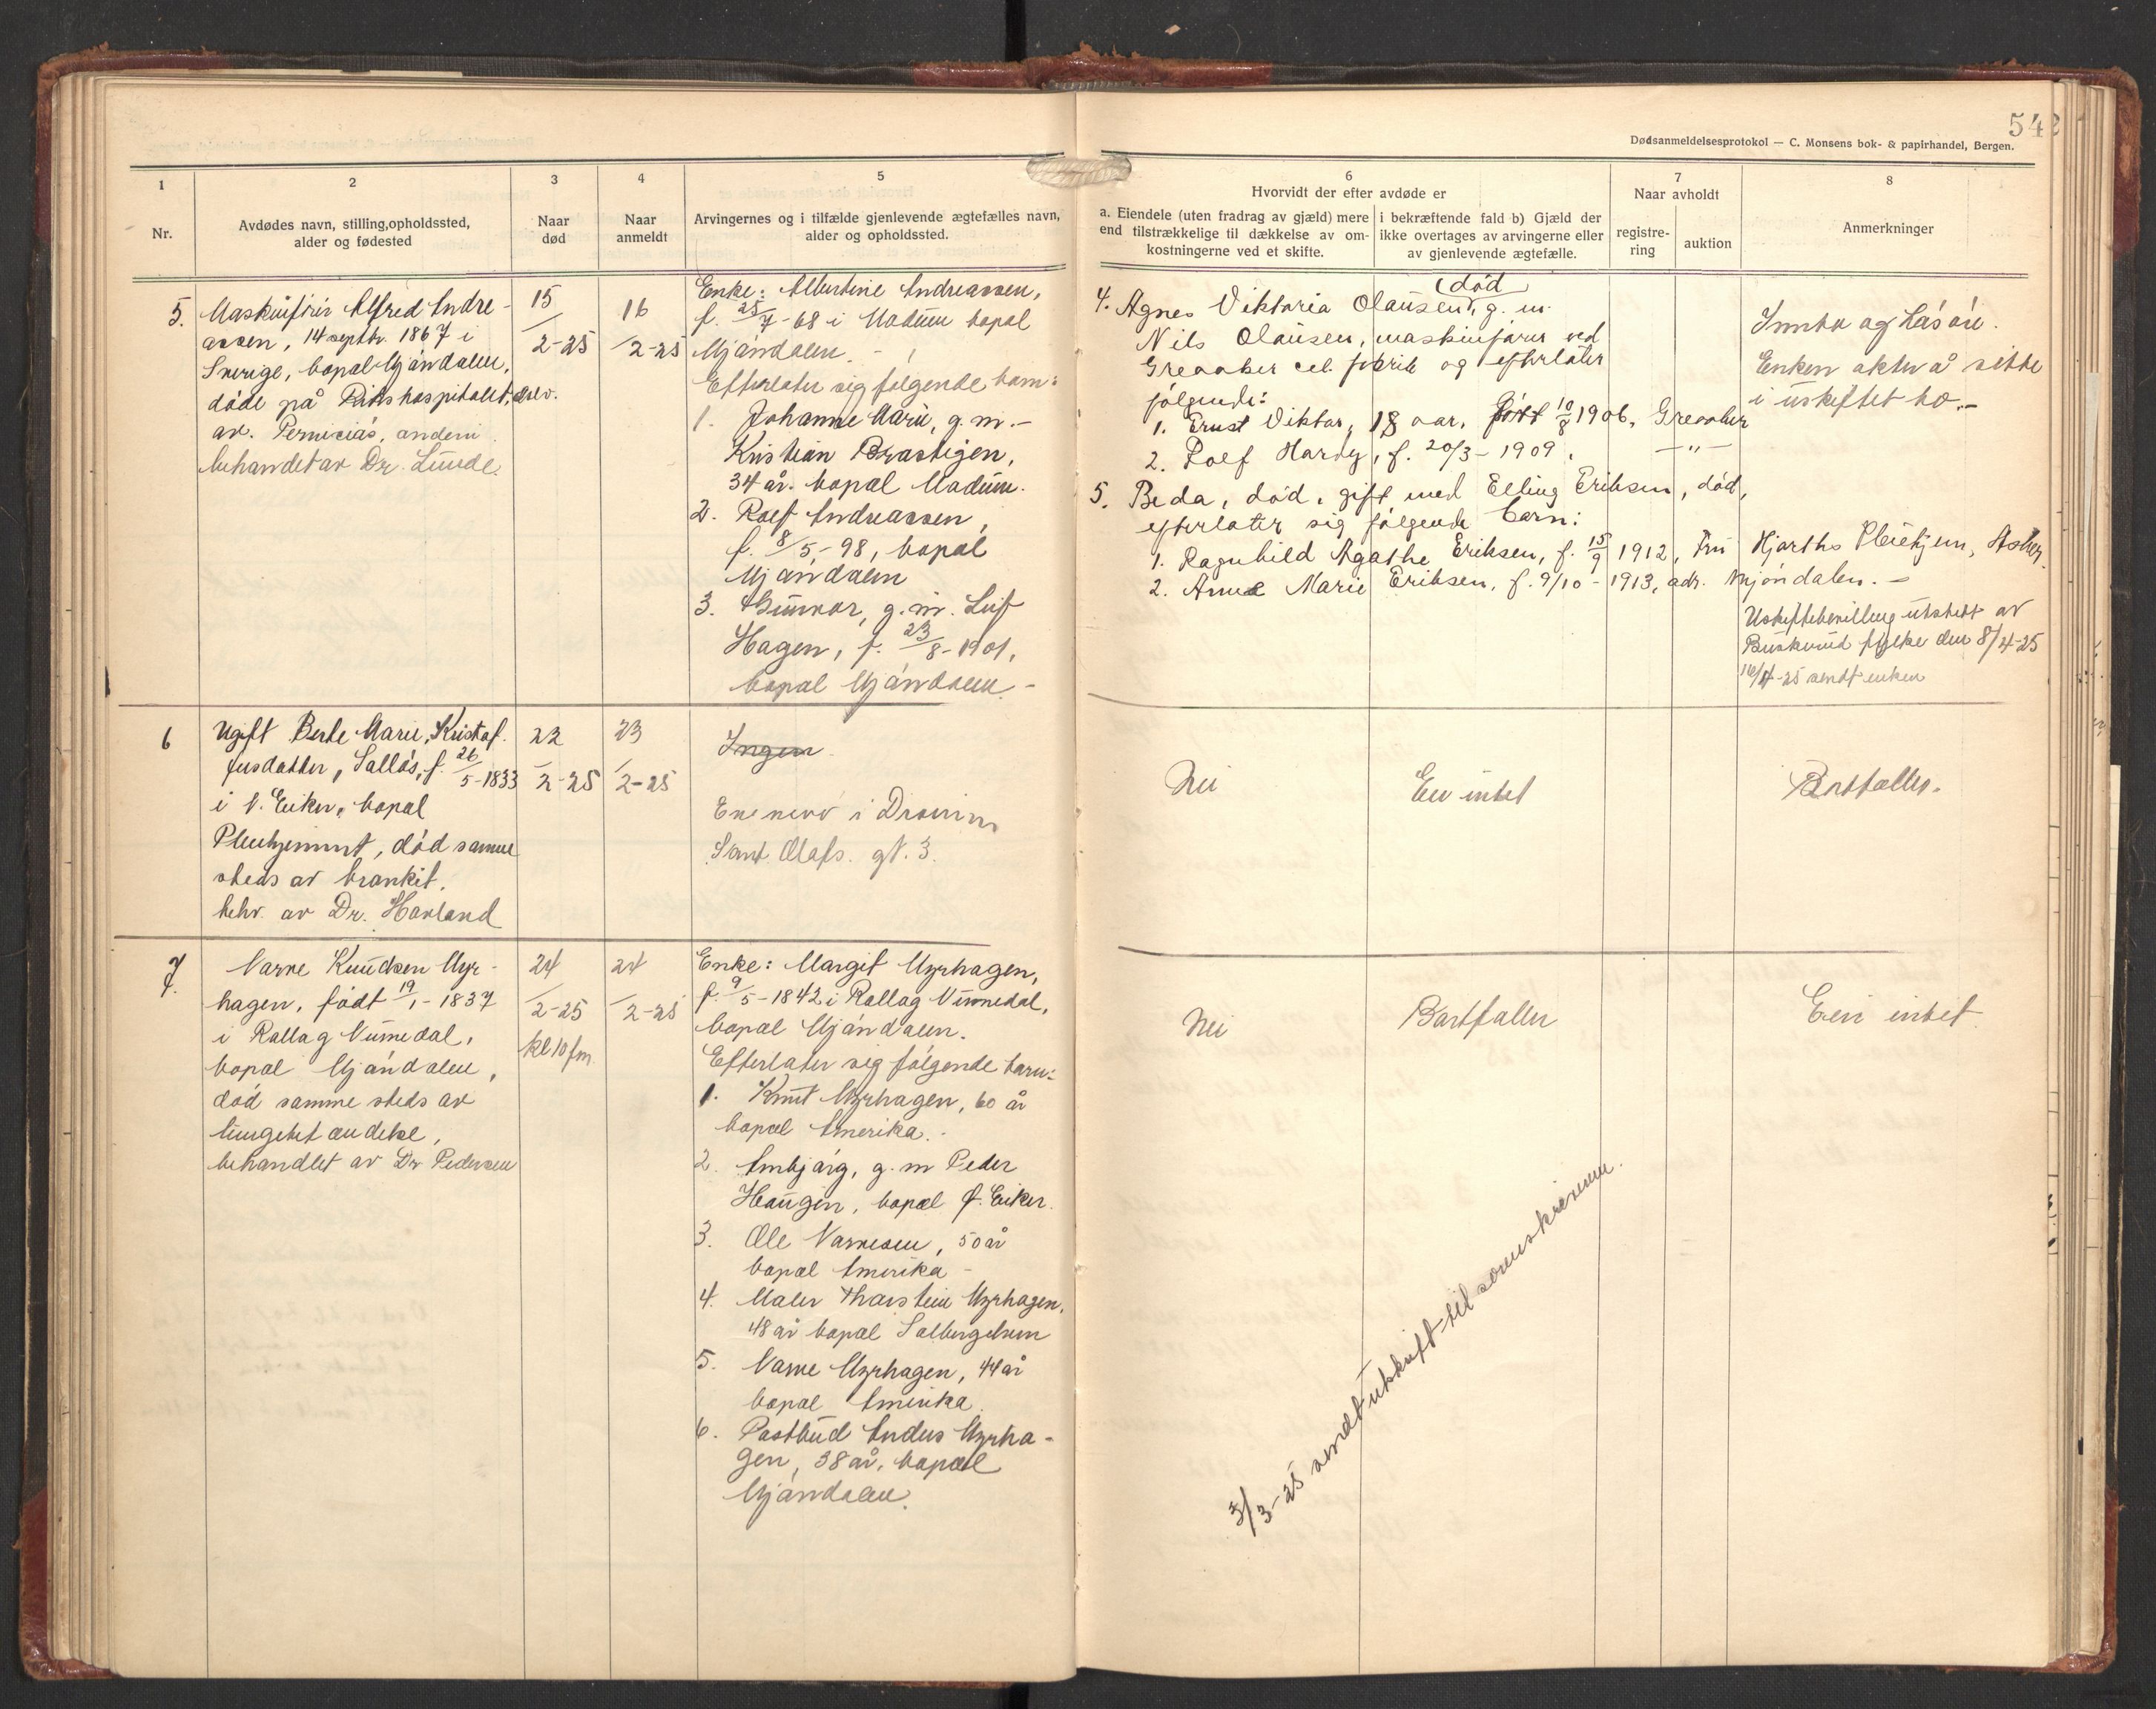 542
Dødsanmeldelsesprotokol — C. Monsens bok- & papirhandel, Bergen.
1
Nr.
2
Avdødes navn, stilling, opholdssted,
alder og fødested
3
Naar
død
4
Naar
anmeldt
5
Arvingernes og i tilfælde gjenlevende ægtefælles navn,
alder og opholdssted.
6
Hvorvidt der efter avdøde er
a. Eiendele (uten fradrag av gjæld) mere
end tilstrækkelige til dækkelse av om-
kostningerne ved et skifte.
i bekræftende fald b) Gjæld der
ikke overtages av arvingerne eller
av gjenlevende ægtefælle.
7
Naar avholdt
registre-
ring
auktion
8
Anmerkninger
5.
Maskinfører Alfred Andre-
assen, 14 septbr. 1867 i
Sverige, bopæl Mjøndalen,
døde på Rikshospitalet,
av. Perniciøs, anemi
behandlet av Dr. Lunde.
15
/2-25
16
/2-25
Enke: Albertine Andreassen,
f. 25/7-68 i Modum bopæl
Mjøndalen. -
Efterlater sig følgende barn:
1. Johanne Marie, g. m. -
Kristian Brastigen,
34 år. bopæl Modum.
2. Rolf Andreassen,
f. 8/5-98, bopæl
Mjøndalen
3. Gunvor, g. m. Leif
Hagen, f. 23/8-1901,
bopæl Mjøndalen -
4. Agnes Viktoria Olausen, (død) g. m.
Nils Olausen, maskinfører ved
Greaaker cel. fabrik og efterlater
følgende:
1. Ernst Viktor, 18 aar, født 10/8 1906, Greaaker
2. Rolf Hardy, f. 20/3-1909. —"—
5. Beda, død, gift med Elling Eriksen, død,
efterlater sig følgende barn:
1. Ragnhild Agathe Eriksen, f. 15/9 1912, Fru Hjorths Pleiehjem, Asker.
2. Anna Marie Eriksen, f. 9/10-1913, adr. Mjøndalen. -
Innbo og Løsøre.
Enken akter å sitte
i uskiftet bo.-
Uskiftebevilling utstedt av
Buskerud fylke den 8/4-25
16/4-25 sendt enken
6
Ugift Berte Marie, Kristof-
fersdatter, Salløs, f. 26/5-1833
i N. Eiker, bopæl
Pleiehjemmet, død samme
steds av bronkit,
behv. av Dr. Harland
22
/2-25
23
/2-25
Ingen
Sant. Olafs. gt. 3.
Nei
Eier intet
Bortfaller.
7.
Narve Knudsen Myr-
hagen, født 19/1-1837
i Rollag Numedal,
bopæl Mjøndalen,
død samme steds av
lungebetændelse,
behandlet av Dr Pedersen
24
/2-25
kl 10 fm
24
/2-25
Enke: Margit Myrhagen,
f. 9/5-1842 i Rollag Numedal,
bopæl Mjøndalen.
Efterlater sig følgende barn:
1. Knut Myrhagen, 60 år
bopæl Amerika. -
2. Ambjørg, g. m Peder
Haugen, bopæl Ø. Eiker.
3. Ole Narvesen, 50 år
bopæl Amerika -
4. Maler Thorstein Myrhagen,
48 år bopæl Solbergelven
5. Narve Myrhagen, 44 år
bopæl Amerika.
6. Postbud Anders Myrha-
gen, 38 år, bopæl
Mjøndalen.
Nei
Bortfaller
Eier intet
3/3-25 sendt utskrift til sorenskriveren.